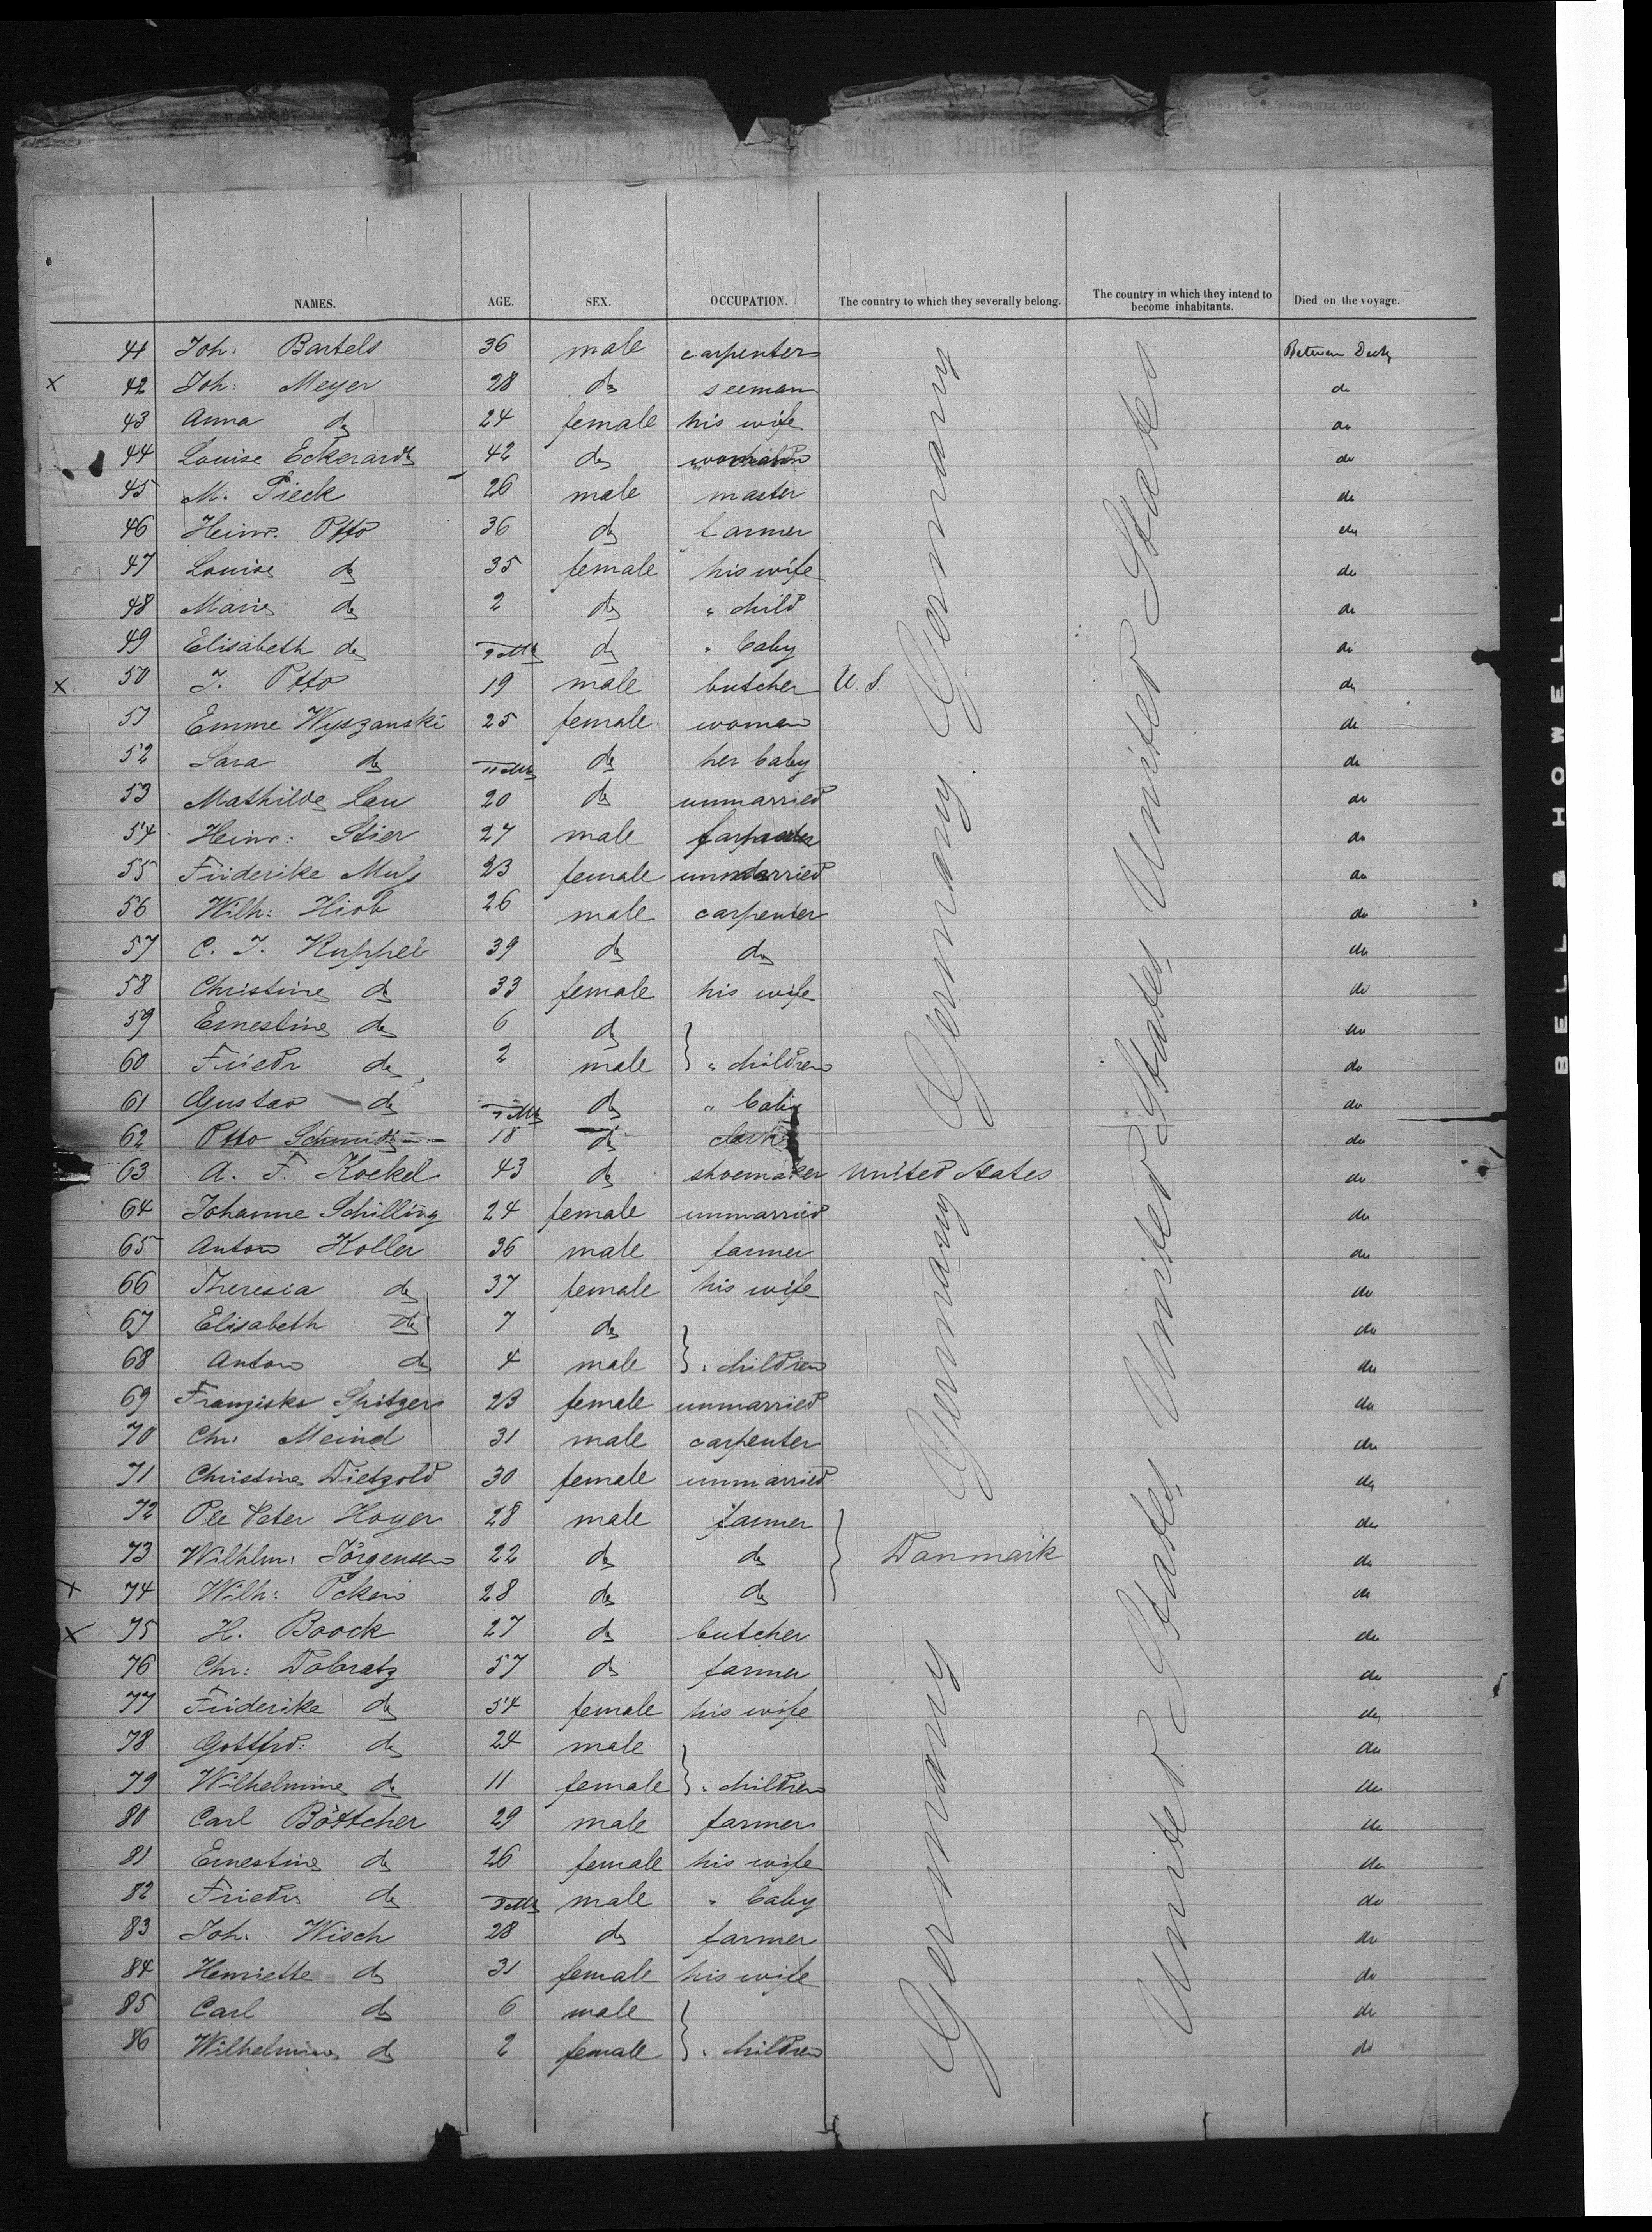 NAMES. AGE. SEX. OCCUPATION. The country to which they severally belong. The country in which they intend to become inhabitants. Died on the voyage.
41 Joh: Bartels 36 male carpenter Between Deck
x 42 Joh: Meyer 28 do seeman do
43 Anna do 24 female his wife do
44 Louise Eckerardt 42 do do
45 M. Pieck 26 male master do
46 Heinr. Otto 36 do farmer do
47 Louise do 35 female his wife do
48 Marie do 2 do " child do
49 Elisabeth do do " baby do
x 50 J. Otto 19 male butcher U.S. do
51 Emme Wyszanski 25 female woman do
52 Sara do 11 Mts do her baby do
53 Mathilde Lau 20 do unmarried do
54 Heinr: Stier 27 male do
55 Friderike 23 female unmarried do
56 Wilh: Hiob 26 male carpenter do
57 C. J. Kuppel 39 do do do
58 Christine do 33 female his wife do
59 Ernestine do 6 do do
60 Friedr do 2 male } " children do
61 Gustav do do " baby do
62 Otto Schmidt 18 do clerk do
63 A. F. Koekel 43 do shoemaker United States do
64 Johanne Schilling 24 female unmarried do
65 Anton Koller 36 male farmer do
66 Theresia do 37 female his wife do
67 Elisabeth do 7 do do
68 Anton do 4 male } " children do
69 Franziska Spitzer 23 female unmarried do
70 Chr: Meind 31 male carpenter do
71 Christine Dietzold 30 female unmarried do
72 Ole Peter Hoyer 28 male farmer do
73 Wilhlm: Jörgensen 22 do do } Danmark do
x 74 Wilh: 28 do do do
x 75 H. Boock 27 do butcher do
76 Chr: Dobratz 57 do farmer do
77 Friderike do 54 female his wife do
78 Gottfrd: do 24 male do
79 Wilhelmine do 11 female } " children do
80 Carl Böttcher 29 male farmer do
81 Ernestine do 26 female his wife do
82 Friedr do male " baby do
83 Joh: Wisch 28 do farmer do
84 Henriette do 31 female his wife do
85 Carl do 6 male do
86 Wilhelmine do 2 female } " children do
Germany
Germany
Germany
Germany
United States
United States
United States
BELL & HOWELL